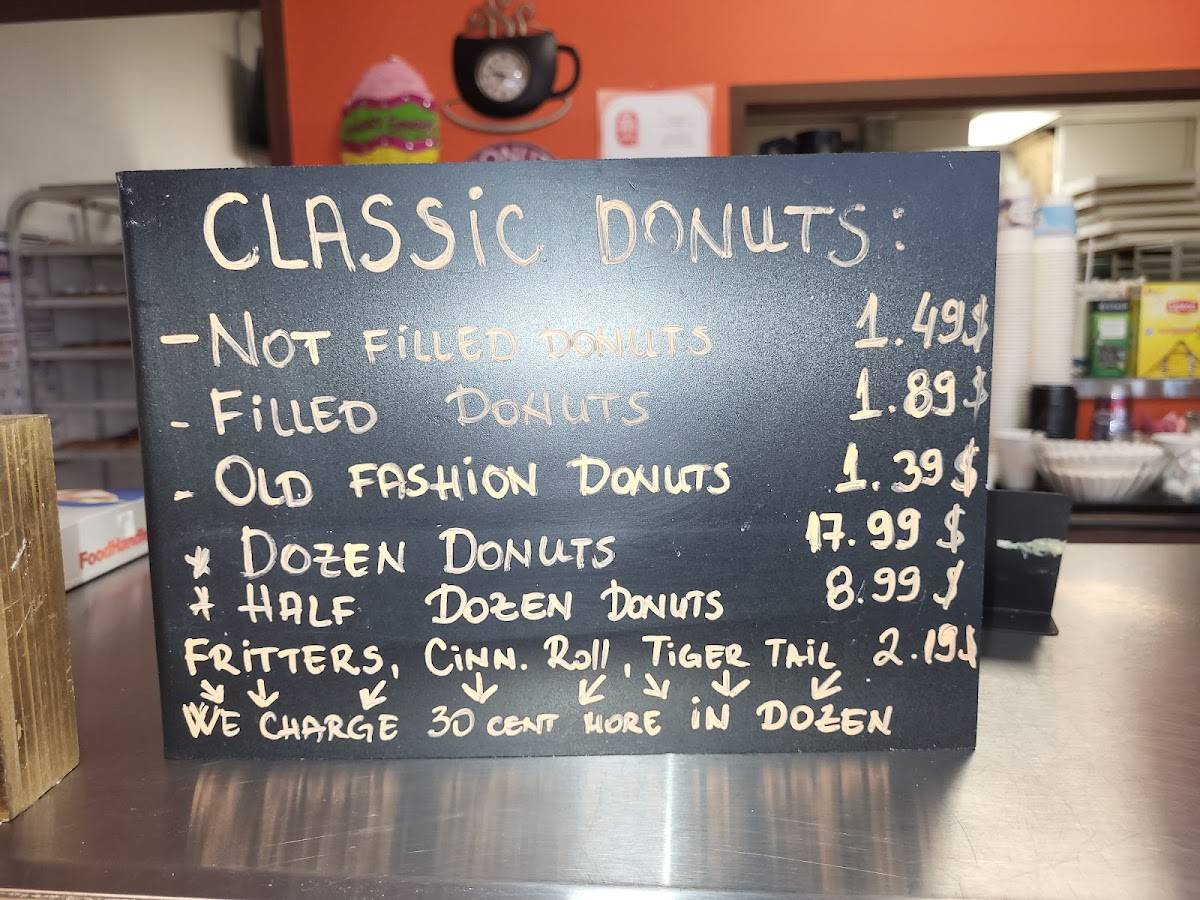 CLASSiC DONUTS:
- NOT FiLLED DONUTS 1.49$
- FiLLED DONUTS 1.89$
- OLD FASHiON DONUTS 1.39$
* DOZEN DONUTS 17.99$
* HALF DOZEN DONUTS 8.99$
FRiTTERS, CiNN. Roll, TiGER TAiL 2.19$
WE CHARGE 30 CENT MORE iN DOZEN
FoodHandl